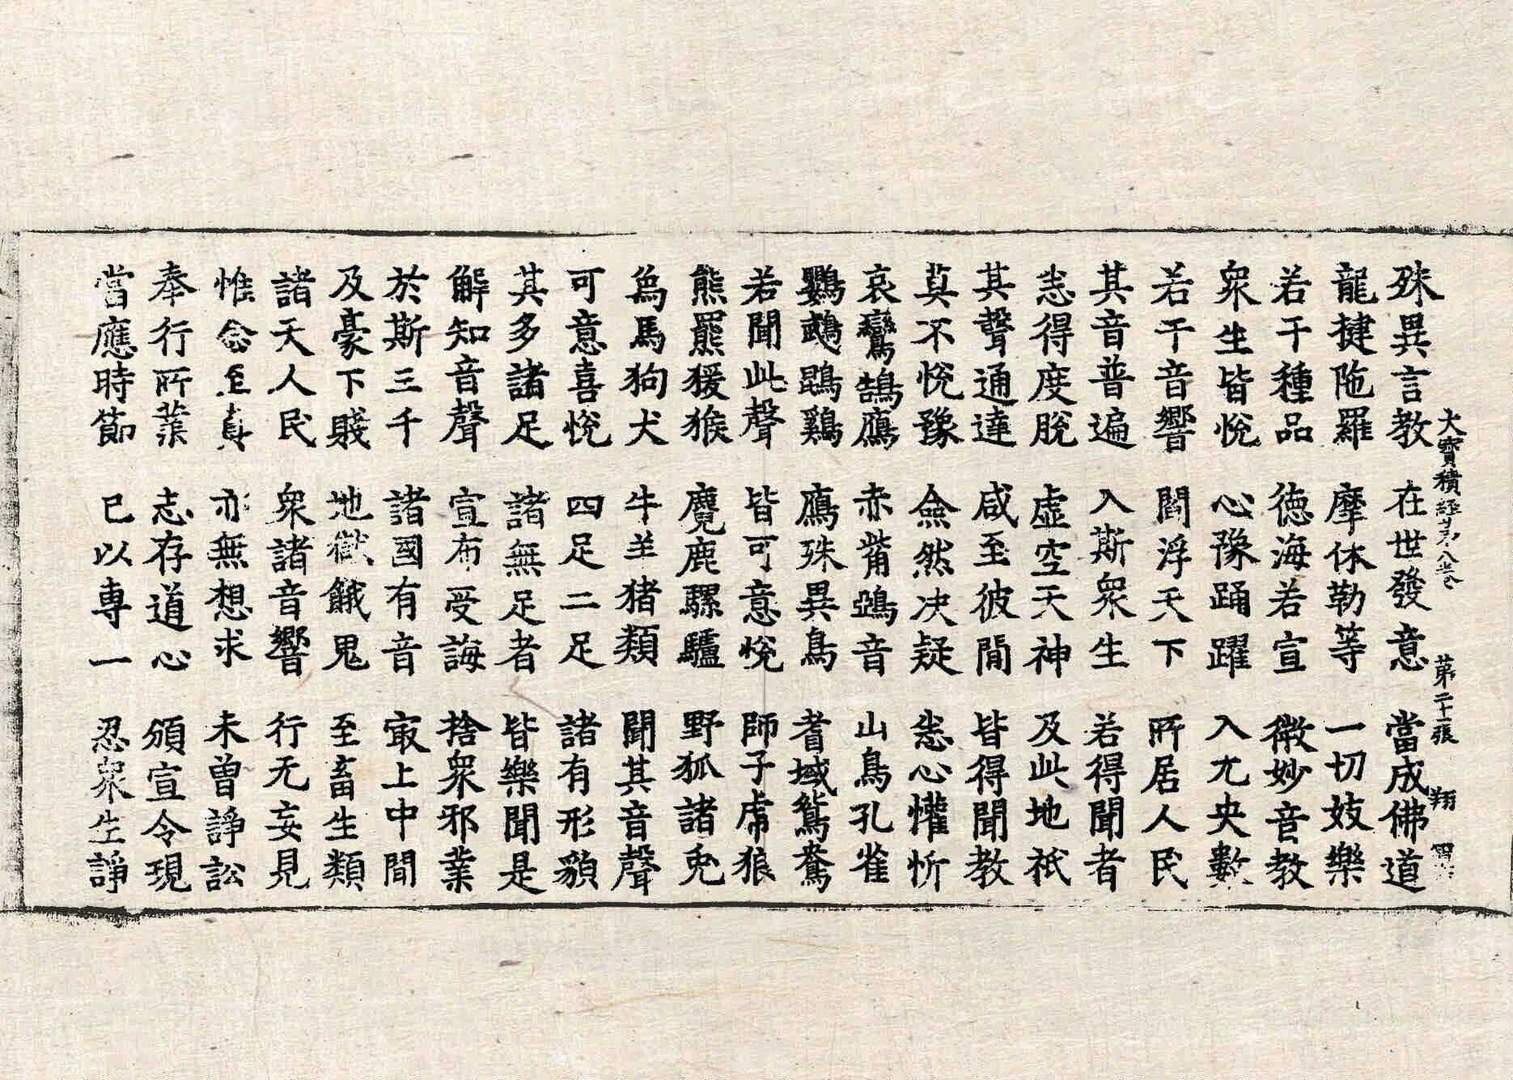 大寶積經第八卷 第二十一張 翔
殊異言教 在世發意 當成佛道
龍揵陁羅 摩休勒等 一切妓樂
若干種品 德海若宣 微妙音教
衆生皆悅 心豫踊躍 入无央數
若干音響 閻浮天下 所居人民
其音普遍 入斯衆生 若得聞者
悉得度脫 虛空天神 及此地祇
其聲通達 咸至彼間 皆得聞教
莫不悅豫 僉然決疑 悉心懽忻
哀鸞鵠鴈 赤觜鵶音 山鳥孔雀
鸚鵡鵾鷄 鴈殊異鳥 耆域鴛鴦
若聞此聲 皆可意悅 師子虎狼
熊羆猨猴 麑鹿騾驢 野狐諸兎
爲馬狗犬 牛羊猪類 聞其音聲
可意喜悅 四足二足 諸有形貌
其多諸足 諸無足者 皆樂聞是
解知音聲 宣布受誨 捨衆邪業
於斯三千 諸國有音 㝡上中間
及豪下賤 地獄餓鬼 至畜生類
諸天人民 衆諸音響 行无妄見
惟念至真 亦無想求 未曾諍訟
奉行所業 志存道心 頒宣令現
當應時節 已以專一 忍衆生諍